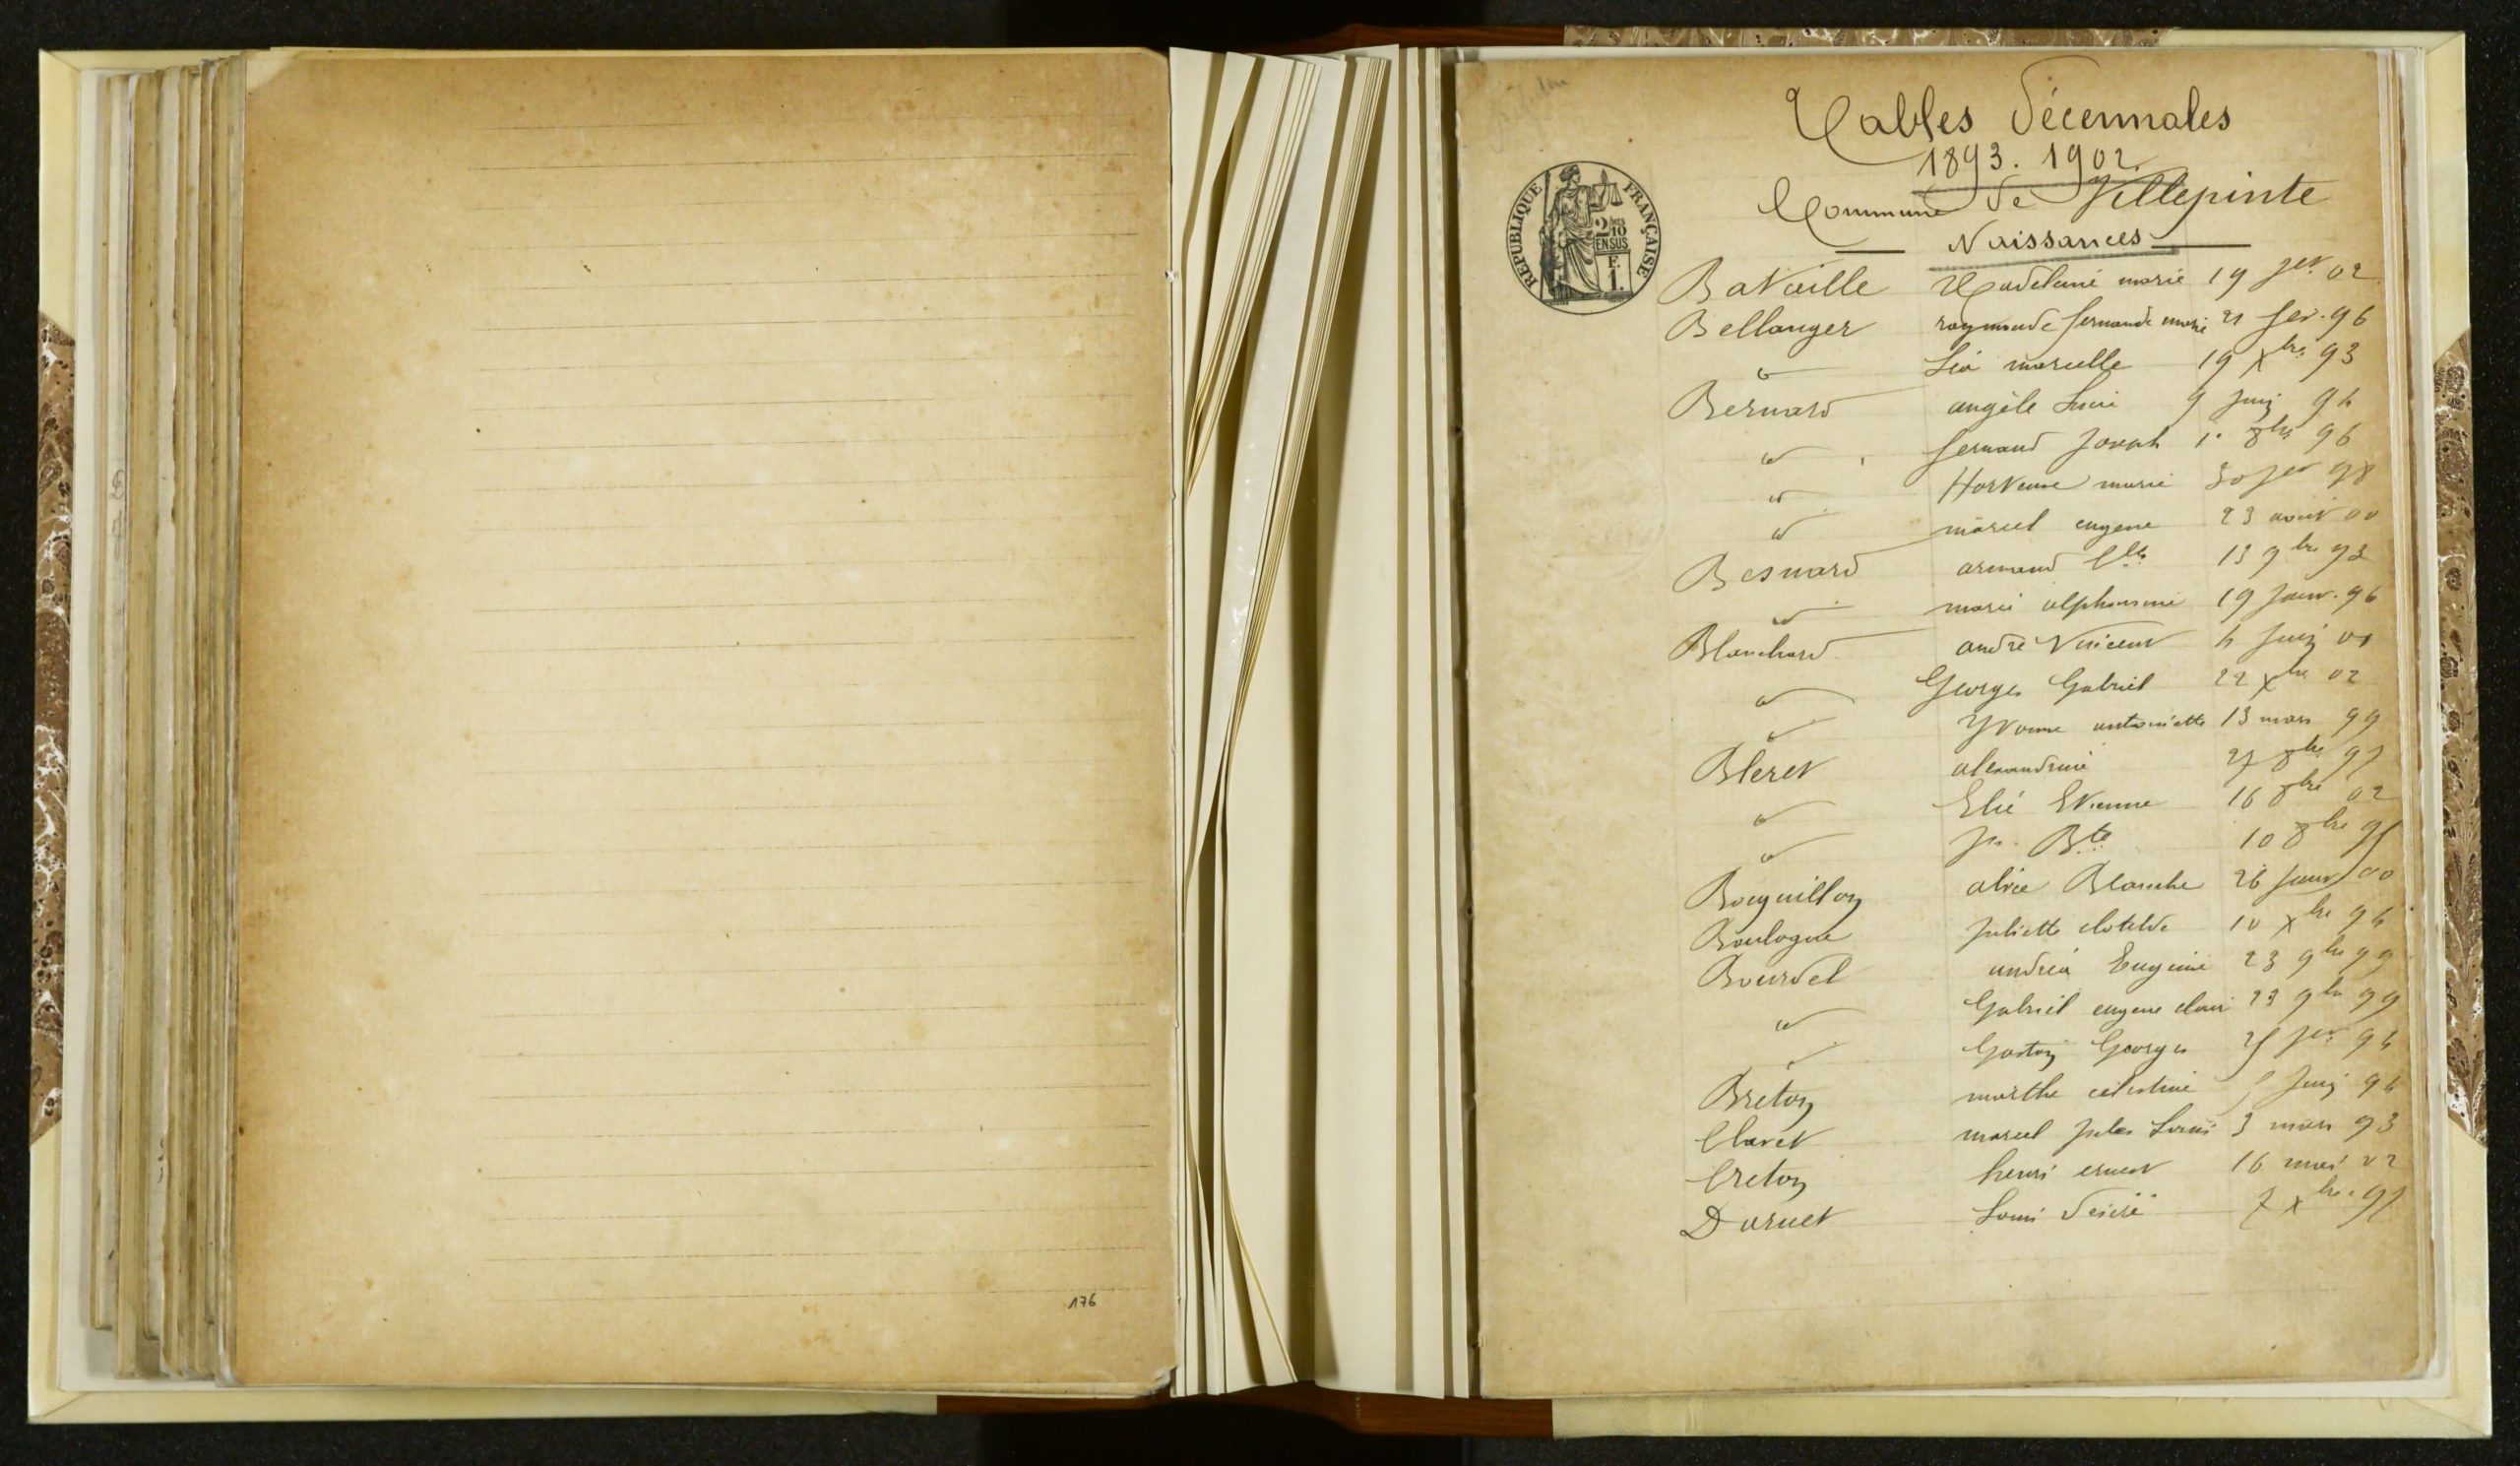 176
Tables Décennales
1893. 1902.
Commune de Villepinte
Naissances
RÉPUBLIQUE FRANÇAISE
2/10
EN SUS
F.
1.
Bataille Madeleine marie 19 fev. 02
Bellanger raymonde fernande marie 21 fev. 96
" Léa marcelle 19 Xbre 93
Bernard angèle Lucie 9 Juin 94
" fernand Joseph 1er 8bre 96
" Hortense marie 30 fev 98
" marcel eugene 23 août 00
Besnard armand 13 9bre 93
" marie alphonsine 19 Janv. 96
Blanchard andré Vincent 4 Juin 01
" Georges Gabriel 22 Xbre 02
" Yvonne antoinette 13 mars 99
Bleret alexandrine 27 8bre 97
" Elie Etienne 16 8bre 02
" Jn Bte 10 8bre 95
Bocquillon alice Blanche 26 Janv 00
Boulogne Juliette clotilde 10 Xbre 94
Bourdel andréa Eugenie 23 9bre 99
" Gabriel eugene 23 9bre 99
" Gaston Georges 25 fev. 94
Breton marthe celestine Juin 94
Claret marcel Jules Louis 3 mars 93
Creton henri ernest 16 mai 02
Daruet Louis Désiré 7 Xbre 97